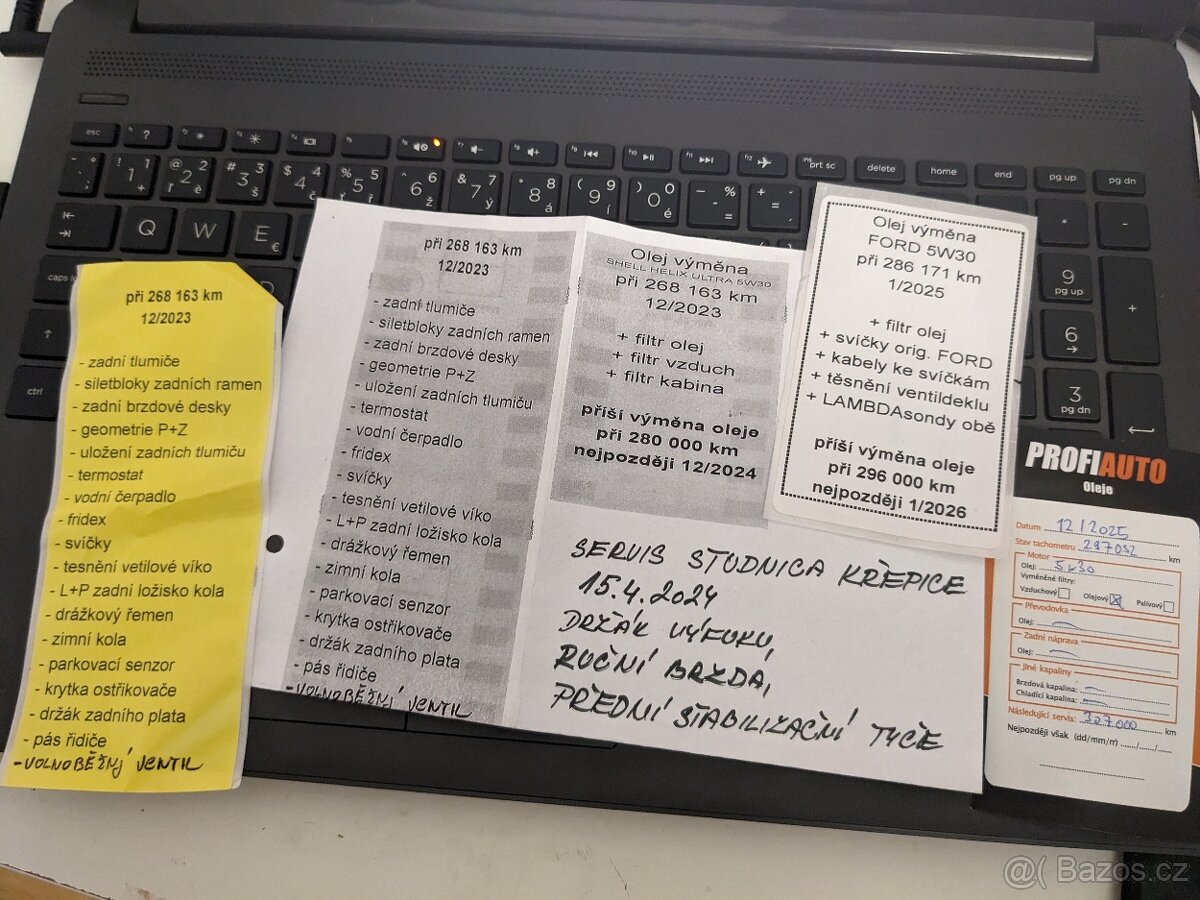 při 268 163 km
12/2023
- zadní tlumiče
- siletbloky zadních ramen
- zadní brzdové desky
- geometrie P+Z
- uložení zadních tlumiču
- termostat
- vodní čerpadlo
- fridex
- svíčky
- tesnění vetilové víko
- L+P zadní ložisko kola
- drážkový řemen
- zimní kola
- parkovací senzor
- krytka ostřikovače
- držák zadního plata
- pás řidiče
- VOLNOBĚŽNÝ VENTIL
při 268 163 km
12/2023
- zadní tlumiče
- siletbloky zadních ramen
- zadní brzdové desky
- geometrie P+Z
- uložení zadních tlumiču
- termostat
- vodní čerpadlo
- fridex
- svíčky
- tesnění vetilové víko
- L+P zadní ložisko kola
- drážkový řemen
- zimní kola
- parkovací senzor
- krytka ostřikovače
- držák zadního plata
- pás řidiče
- VOLNOBĚŽNÝ VENTIL
Olej výměna
SHELL HELIX ULTRA 5W30
při 268 163 km
12/2023
+ filtr olej
+ filtr vzduch
+ filtr kabina
příší výměna oleje
při 280 000 km
nejpozději 12/2024
SERVIS STUDNICA KŘEPICE
15.4.2024
DRŽÁK VÝFUKU,
RUČNÍ BRZDA,
PŘEDNÍ STABILIZAČNÍ TYČE
Olej výměna
FORD 5W30
při 286 171 km
1/2025
+ filtr olej
+ svíčky orig. FORD
+ kabely ke svíčkám
+ těsnění ventildeklu
+ LAMBDAsondy obě
příší výměna oleje
při 296 000 km
nejpozději 1/2026
PROFIAUTO
Oleje
Datum 12.1.2025
Stav tachometru 297032 km
Motor
Olej: 5W30
Vyměněné filtry:
Vzduchový Olejový Palivový
Převodovka
Olej:
Zadní náprava
Olej:
Jiné kapaliny
Brzdová kapalina:
Chladící kapalina:
Následující servis: 327000 km
Nejpozději však (dd/mm/rr) ..../..../....
esc
prt sc
delete
home
end
pg up
pg dn
Q W E
caps
ctrl
9
pg up
6
3
pg dn
Bazos.cz